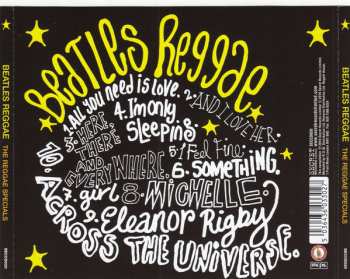 BEATLES REGGAE
THE REGGAE SPECIALS
BEATLES Reggae
1. All you need is love.
2. AND I LOVE HER.
3. HERE, THERE AND EVERYWHERE.
4. I'm only sleeping
5. I Feel fine.
6. SOMETHING.
7. girl
8. MICHELLE.
9. Eleanor Rigby
10. ACROSS THE UNIVERSE.
BEATLES REGGAE
THE REGGAE SPECIALS
5 036436 031027